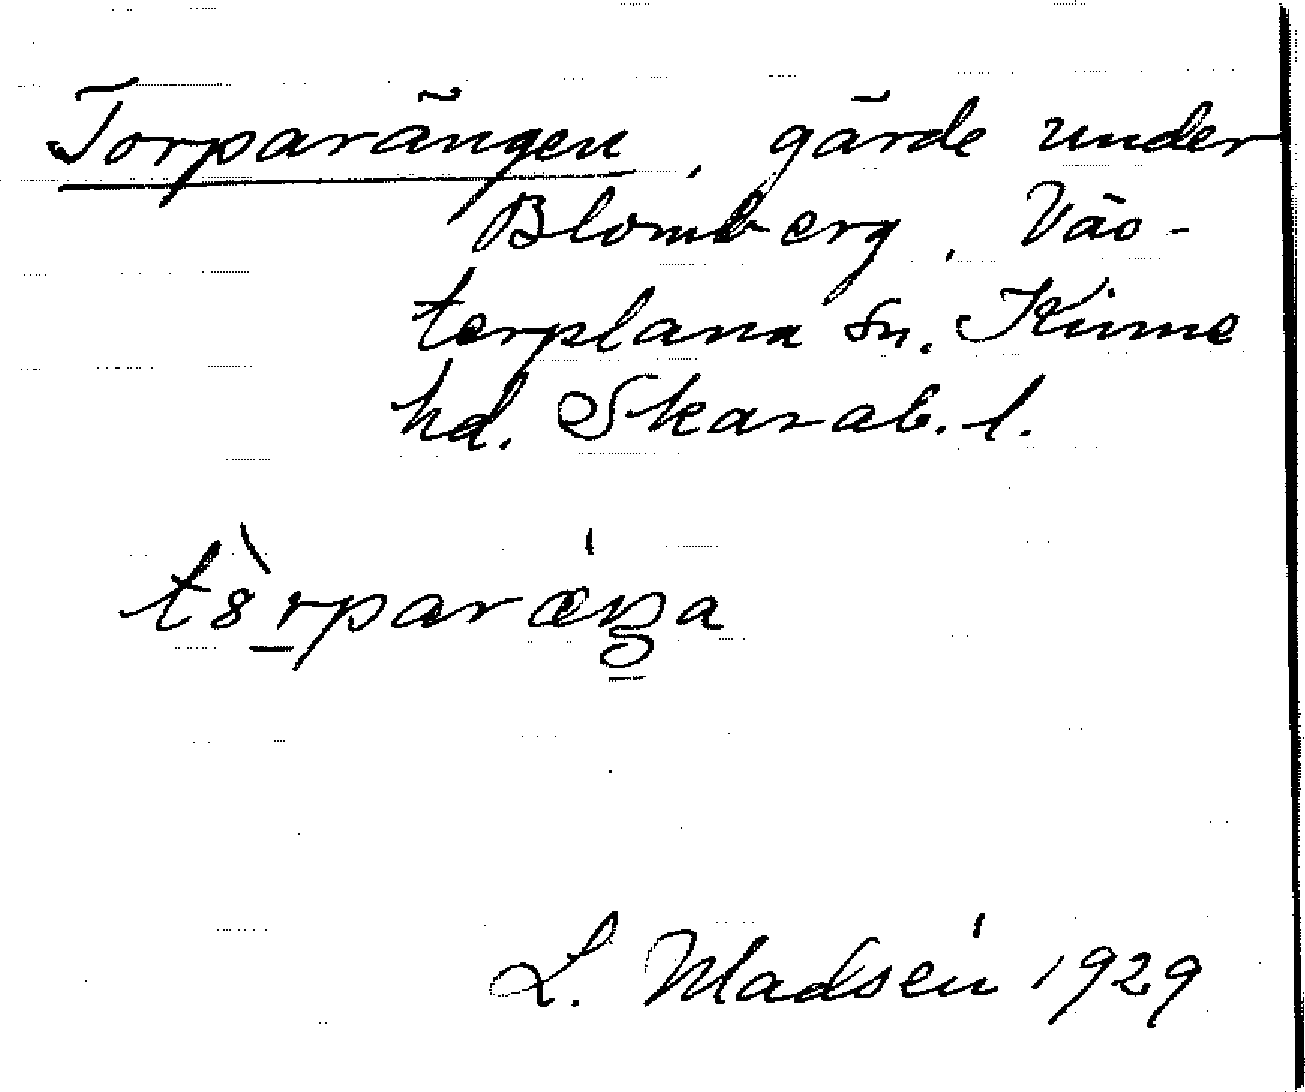 Torparängen, gärde under
Blomberg, Väs-
terplana sn. Kinne
hd. Skarab. l.
tȯ̀rparæŋa
L. Madsén 1929